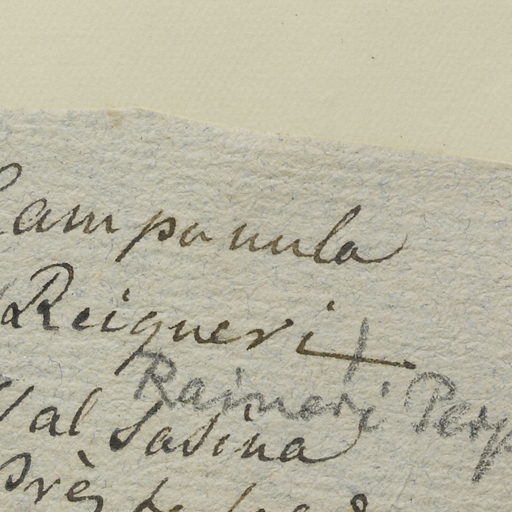 Campanula
Reigneri
Raineri Perp
Val Sasina
Près